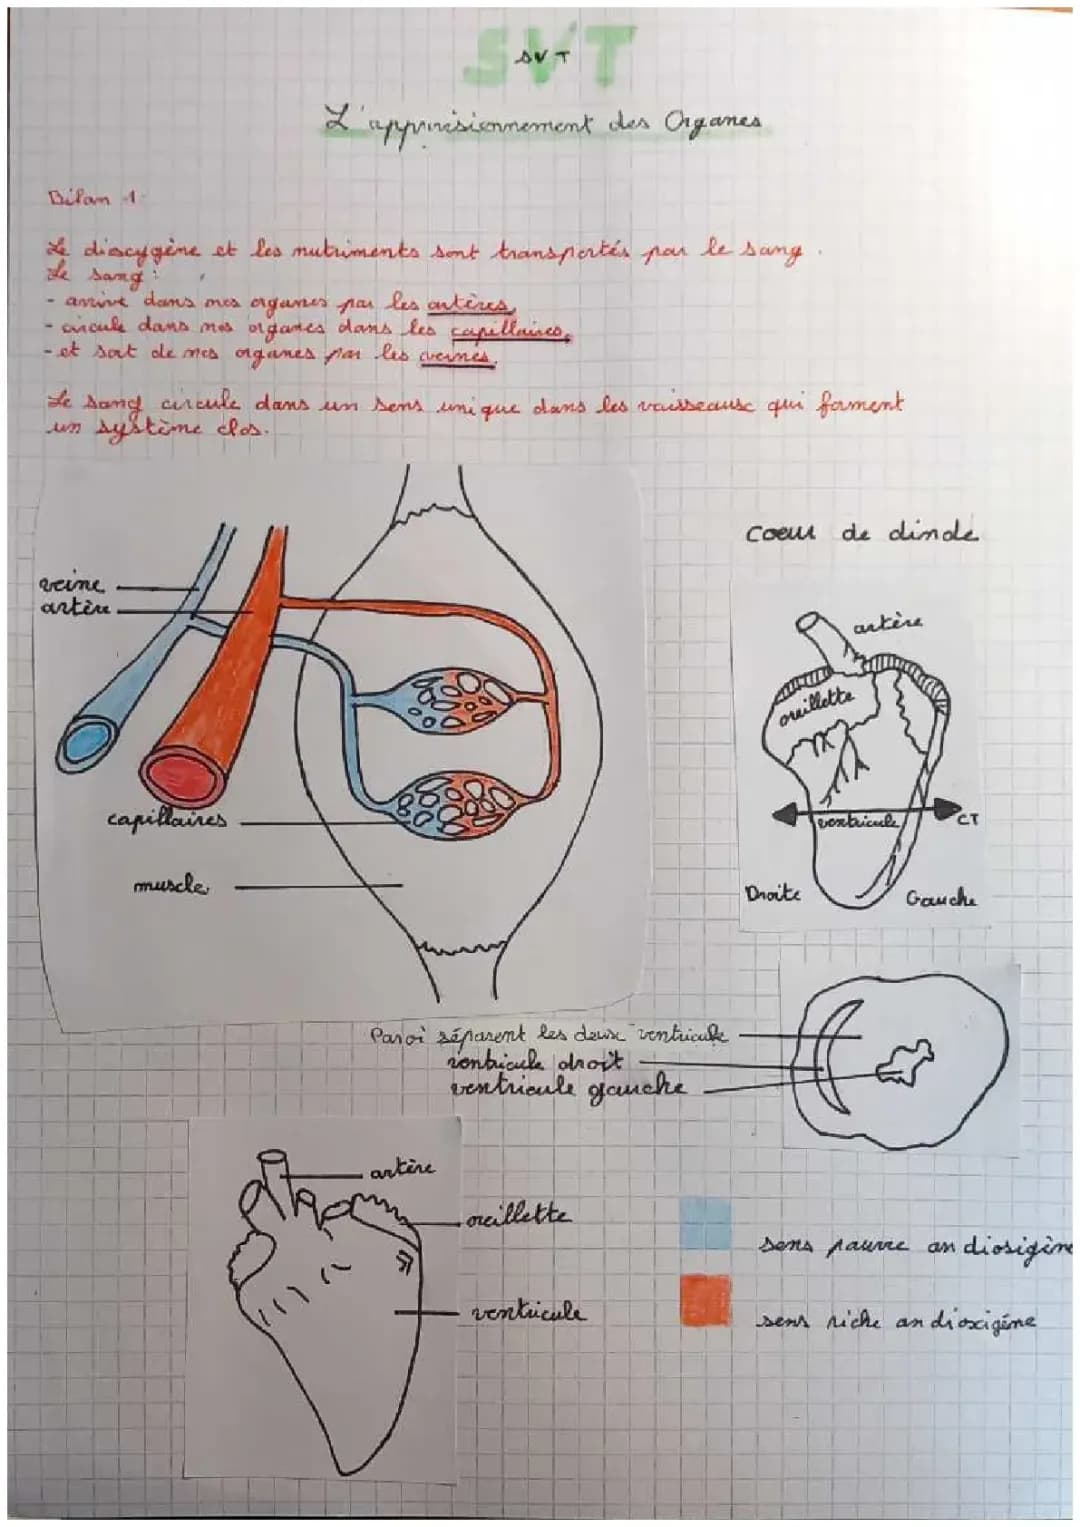 SVT
SVT
L'approvisionnement des Organes
Bilan 1
Le dioxygène et les nutriments sont transportés par le sang.
Le sang :
- arrive dans mes organes par les artères,
- circule dans nos organes dans les capillaires,
- et sort de mes organes par les veines.
Le sang circule dans un sens unique dans les vaisseaux qui forment
un système clos.
coeur de dinde
veine
artère
artère
oreillette
capillaires
ventricule
CT
muscle
Droite
Gauche
Paroi séparent les deux ventricule
ventricule droit
ventricule gauche
artère
oreillette
sens pauvre an diosigène
ventricule
sens riche an dioxigéne